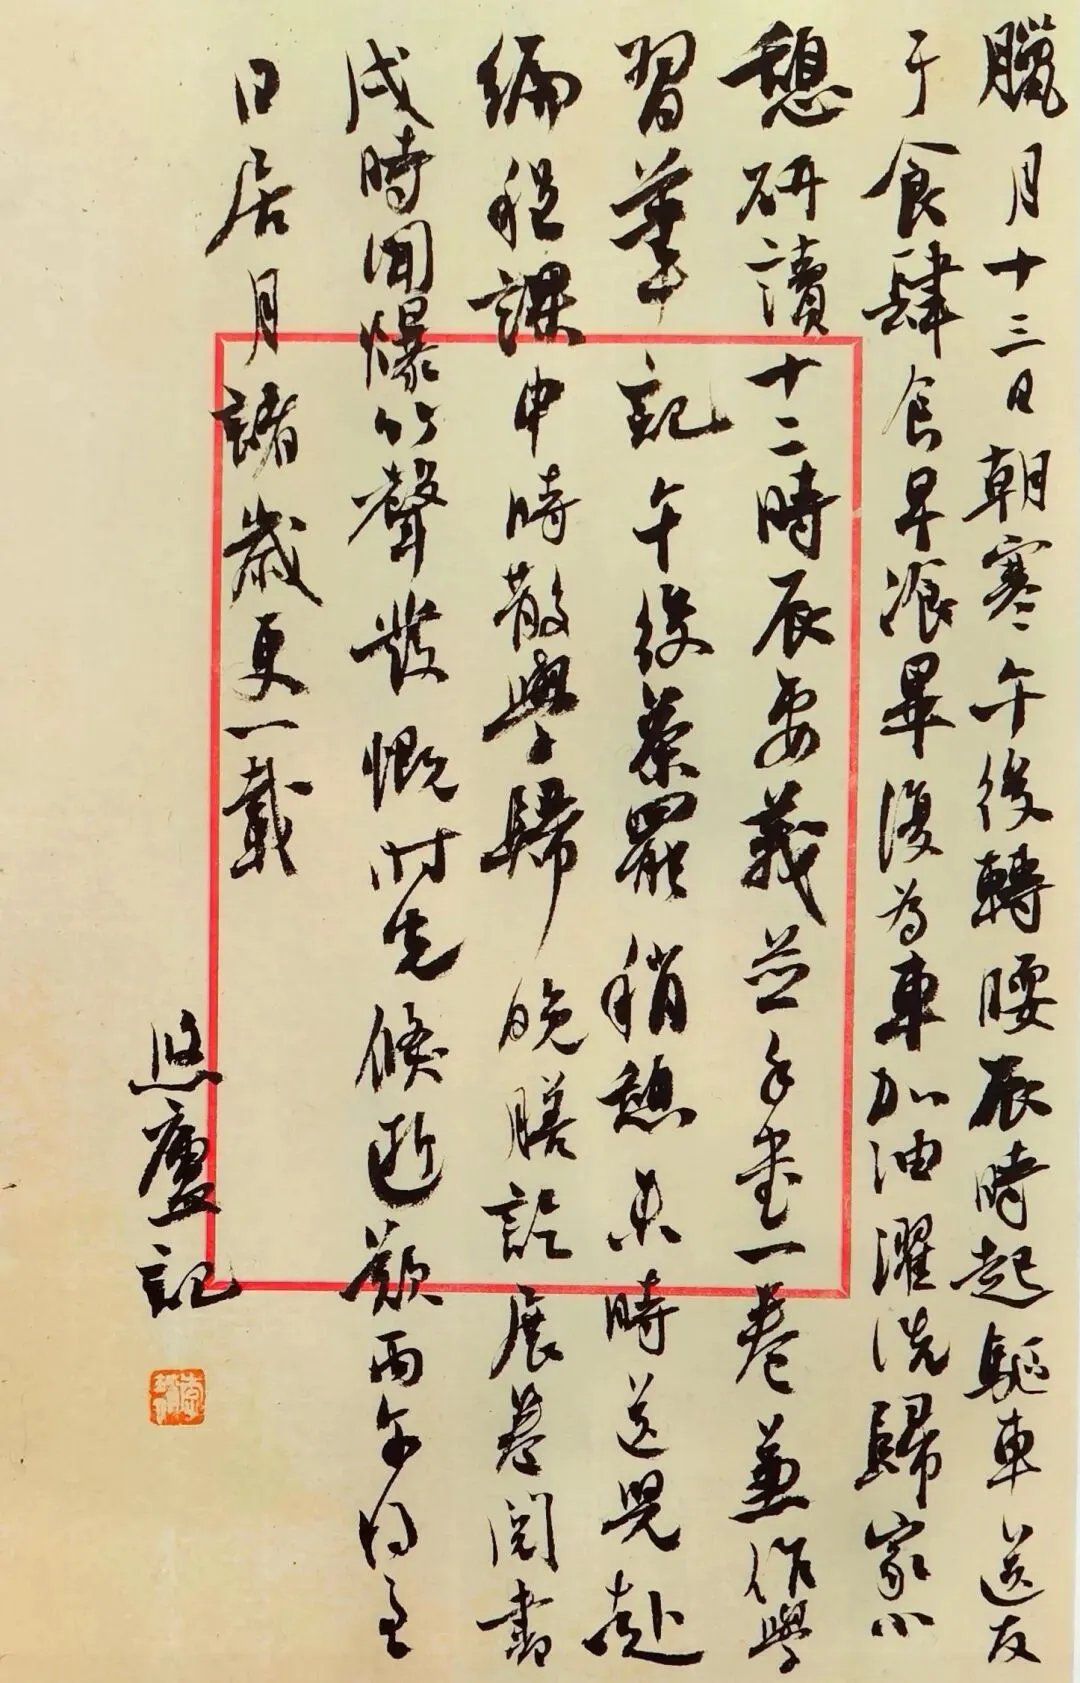 臘月十三日朝寒午後轉腰辰時起驅車送友
于食肆食早飡畢復為車加油濯洗歸家小
憩研讀十二時辰要義並手書一卷並作學
習筆記午後茶罷稍憩未時送兒赴
編程課申時散學歸晚膳訖展卷閱書
戌時聞爆竹聲發慨時光倏逝歎丙午将至
日居月諸歲更一載
悠廬記